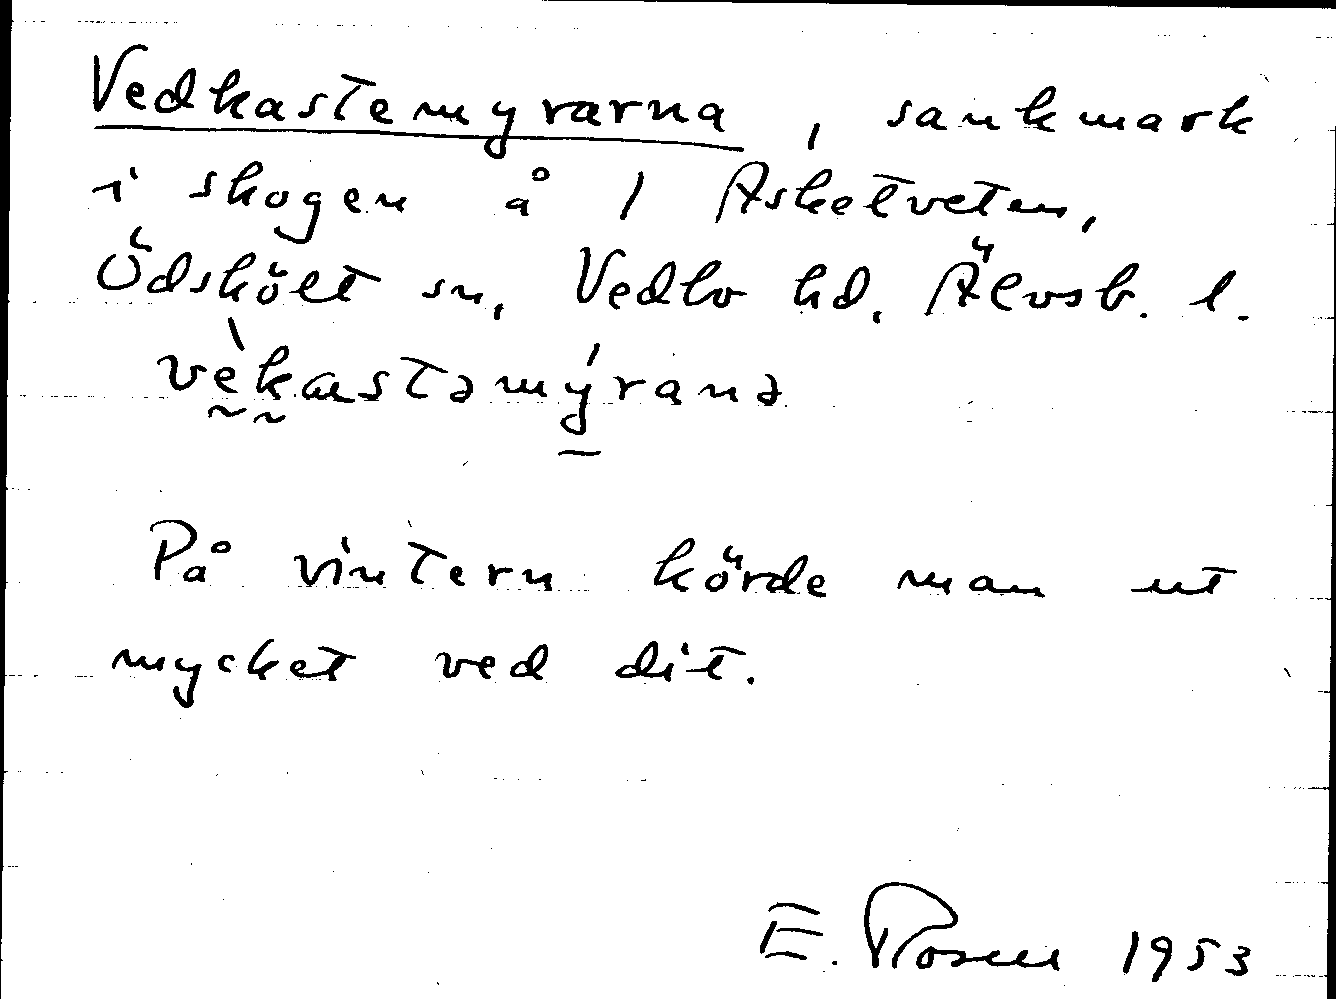 Vedkastemyrarna, sankmark
i skogen å 1 Asketveten,
Ödskölt sn, Vedbo hd, Älvsb. l.
vèkastəmýranə
På vintern körde man ut
mycket ved dit.
E. Rosén 1953